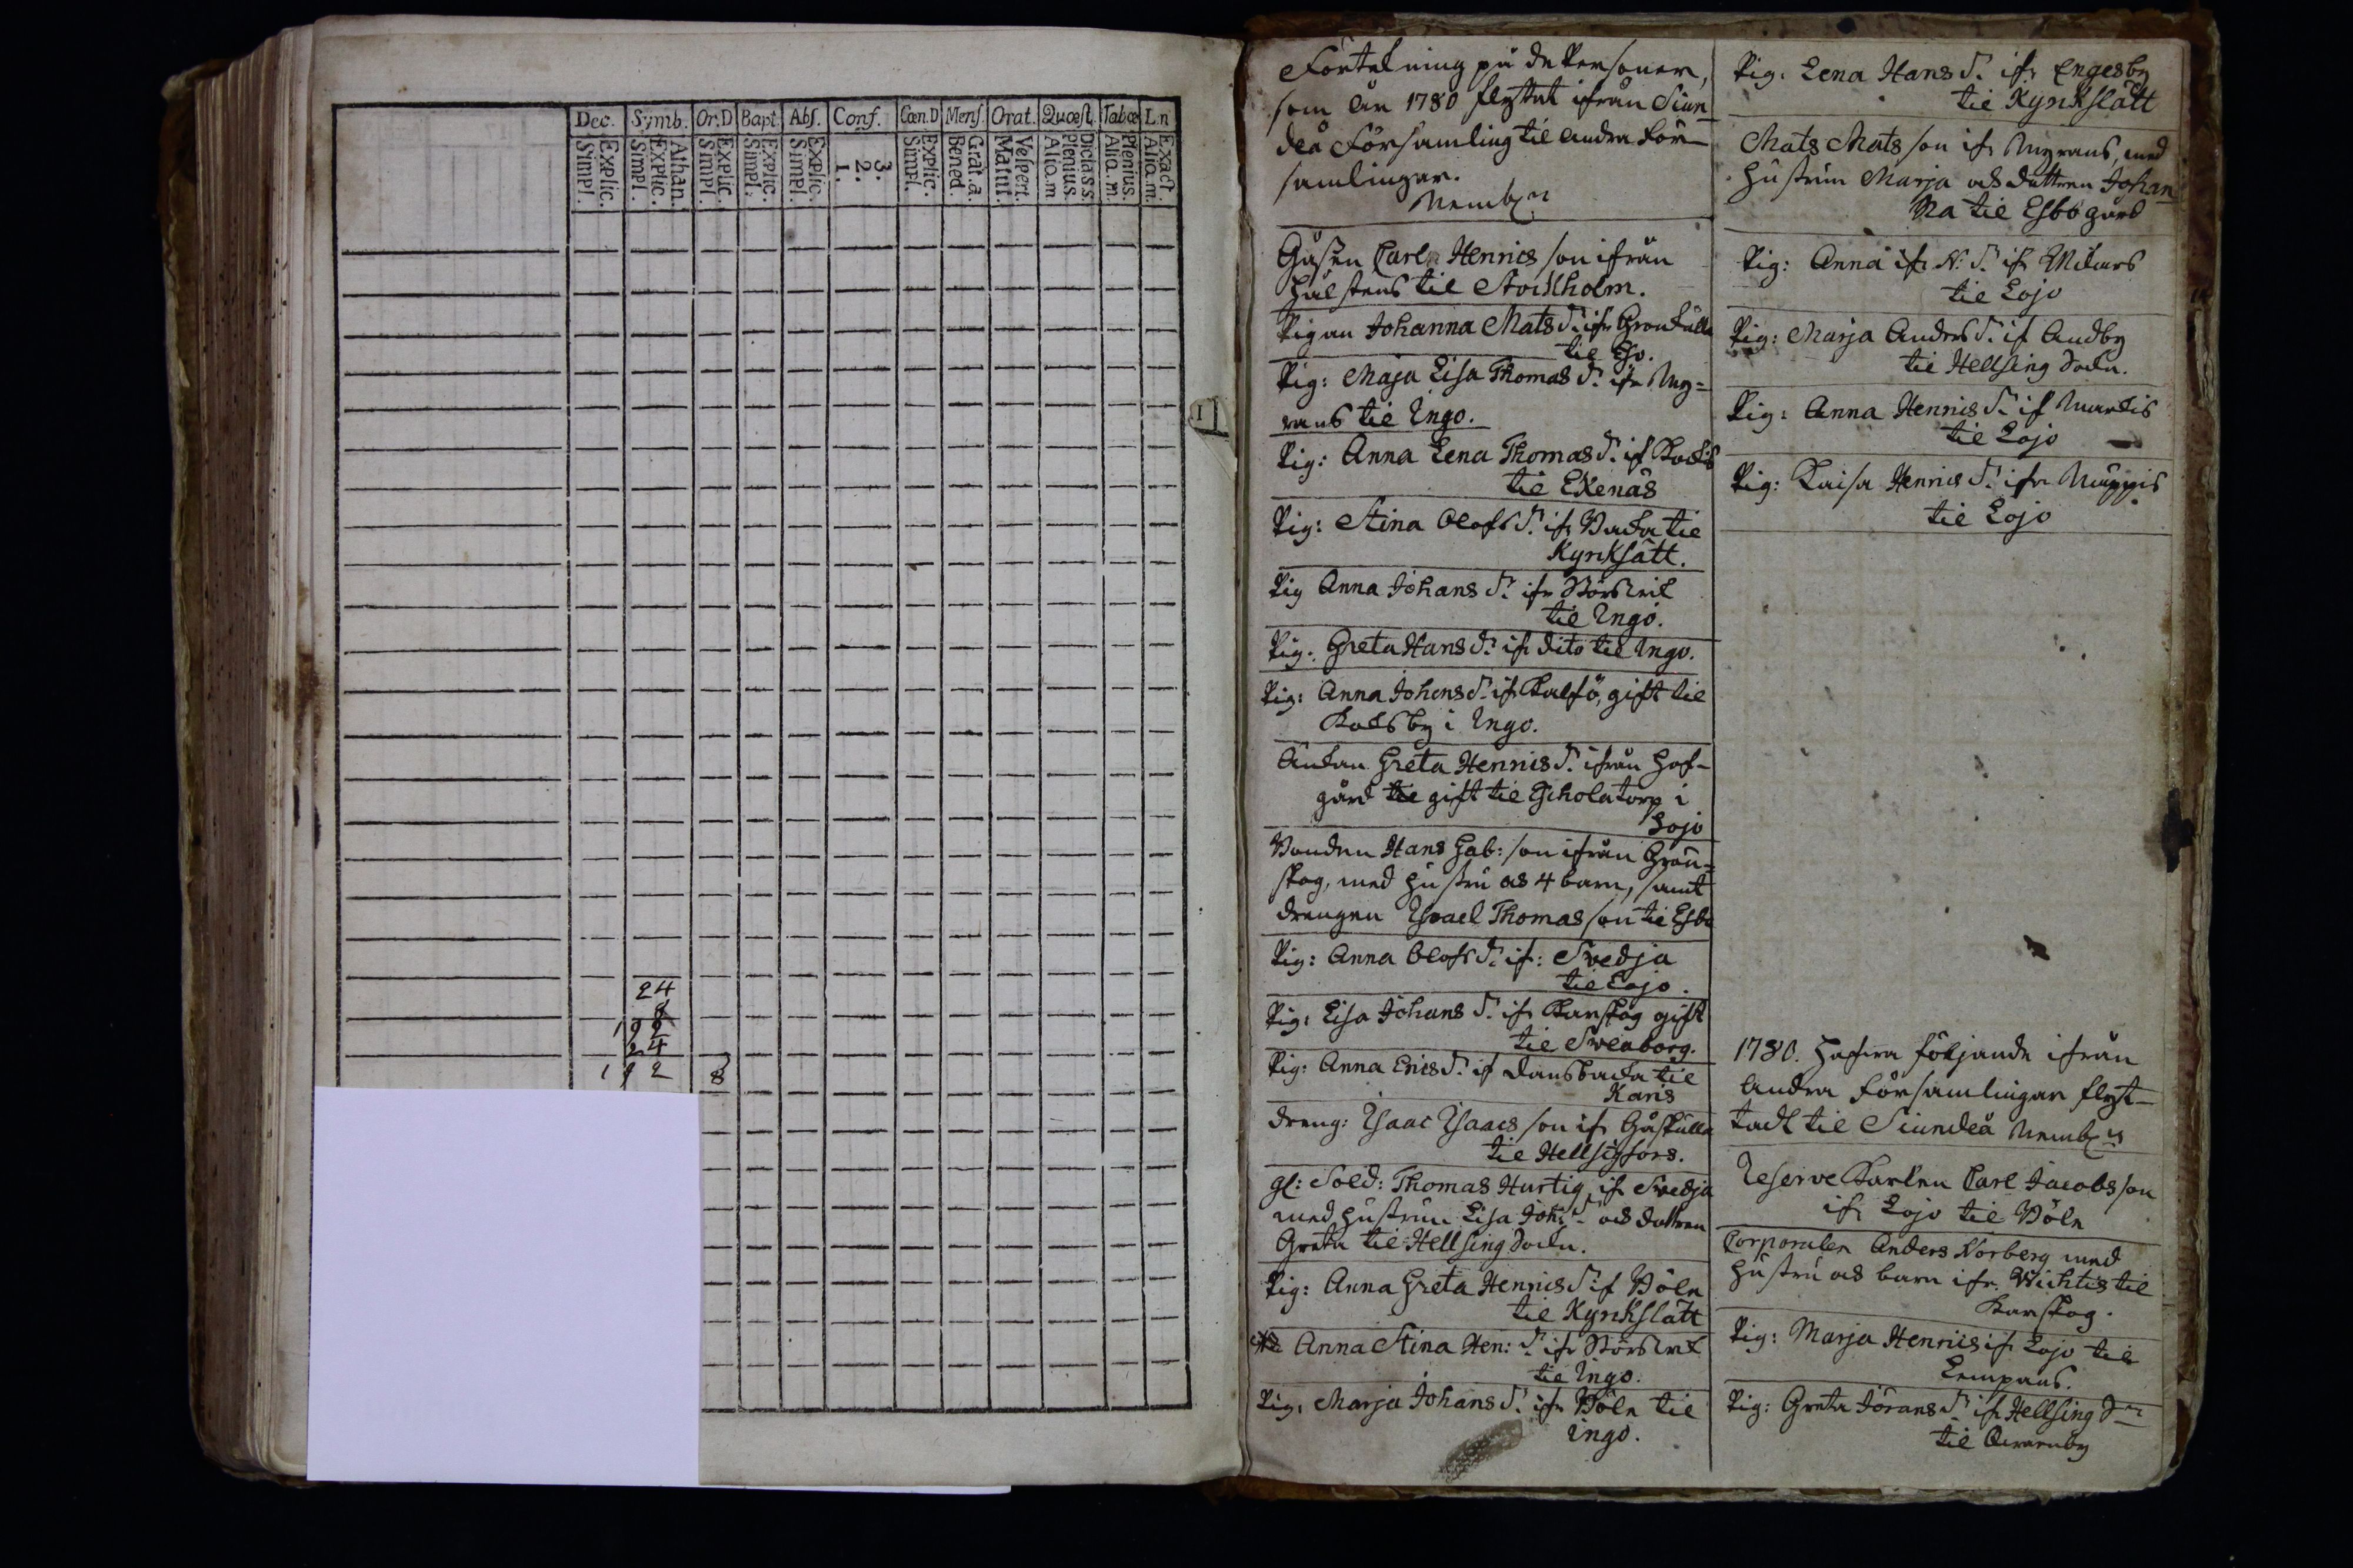 Dec. Symb. Or.D Bapt. Abs. Conf. Cœn.D Mens. Orat. Quæst. Tabœ L.n
Explic. Simpl.
Athan. Explic. Simpl.
Explic. Simpl.
Explic. Simpl.
Explic. Simpl.
3. 2. 1.
Explic. Simpl.
Grat. a. Bened.
Vespert. Matut.
Dictass. Plenius. Aliq.m
Plenius. Aliq.m.
Exact. Aliq.m.
24
8
192
24
192 8
I
Förtekning på de Personer,
som år 1780 flyttat ifrån Siun
deå Församling til andra För-
samlingar.
Nembl:n
Carl Henrics son ifrån
til Stockholm.
Pigan Johanna Mats D:r ifr
til
Pig: Maja Lisa Thomas D:r ifr My=
rans til Ingo.
Pig: Anna Lena Thomas D:r if
til Ekenäs
Pig: Stina Olofs D:r ifr Backa til
Kynksätt.
Pig Anna Johans D:r ifr Störsvik
til Ingo.
Pig: Greta Hans D:r if dito til Ingo.
Pig: Anna Johans D:r if Kalfö, gift til
i Ingo.
Änkan Greta Henrics D:r ifrån Hof-
gård gift til i
Lojo
Bonden Hans Gab: son ifrån Grön=
skog, med Hustru och 4 barn, samt
drengen Israel Thomas son til Esbo
Pig: Anna Olofs D:r if: Svedja
til Lojo.
Pig: Lisa Johans D:r if Karskog gift
til Sveaborg.
Pig: Anna Erics D:r if Dansbacka til
Karis
dreng: Isaac Isaacs son if Gåskulla
til Hellsigfors.
gl: Sold: Thomas Hurtig, if Svedja
med Hustrun Lisa Joh: D:r och dottren
Greta til Hellsing Sockn.
Pig: Anna Greta Henrics D:r if Böle
til Kynkslätt
Anna Stina Hen: D:r if Störsvik
til Ingo.
Pig: Marja Johans D:r ifr Böle til
Ingo.
Pig: Lena Hans D:r ifr Engesby
til Kynkslätt
Mats Mats son if Myrans, med
Hustrun Marja och dottren Johan
na til Esbo gård
Pig: Anna if N: D:r if
til Lojo
Pig: Marja Anders D:r if Andby
til Hellsing Sockn.
Pig: Anna Henrics D:r if
til Lojo
Pig: Kaisa Henrics D:r ifr
til Lojo
1780. Hafwa följande ifrån
andra Församlingar flyt-
tadt til Siundeå Nembl:n
Reserve Karlen Carl Jacobs son
if Lojo til Böle
Corporalen Anders Norberg med
Hustru och barn ifr. Wichtis til
Karskog.
Pig: Marja Henrics if Lojo til
Lempans.
Pig: Greta Jörans D:r if Hellsing S:n
til Qwarnby